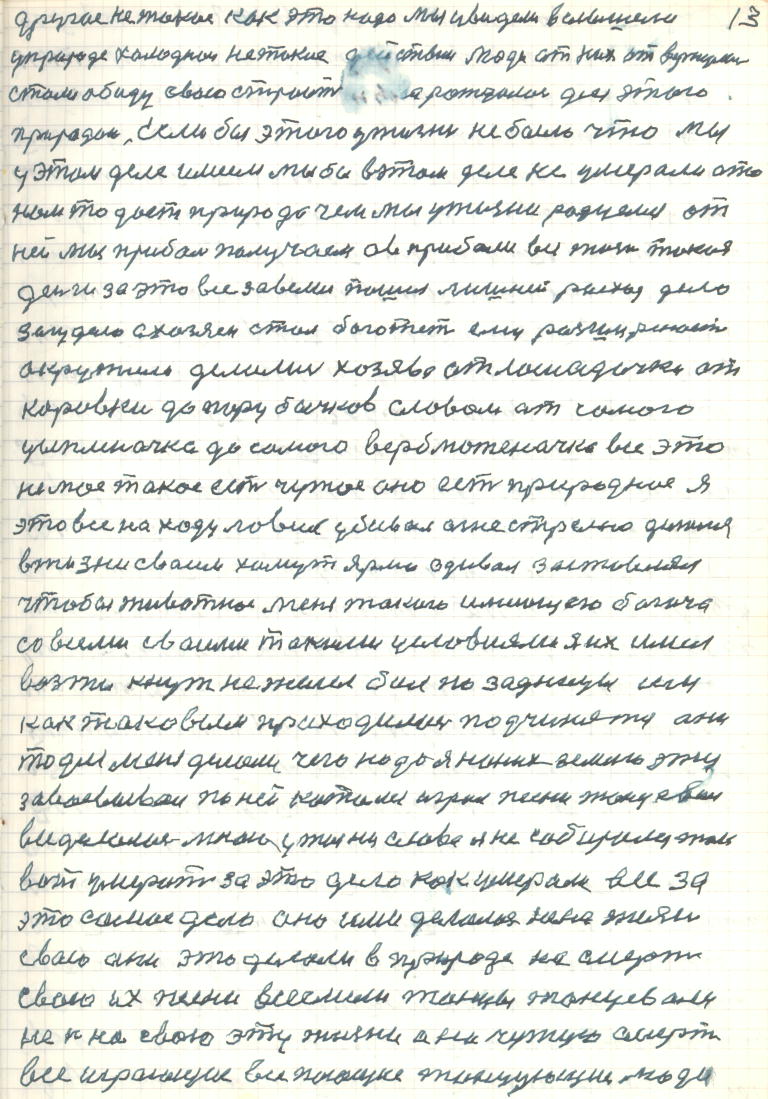 другое не такое как это надо мы увидели в
13
у природе холодное не такие действия люди от них от
стали обиду свою строит рождалося для этого
природои, если бы этого у жизни не было что мы
у этом деле имеем мы бы в этом деле не умерали это
нам то даст природа чем мы у жизни родились от
неи мы прибал получаем ав прибали вся жизн такая
денги за это все завели пошел лишнеи расход дело
загудело а хозяен стал боготет ему
окружила делами хозява от лошадочки от
каровки до пару бычков словом ат самого
цыпленачка до самого верблюженачка все это
не мое такое ест чужое оно ест природние я
это все на ходу ловил убивал огнестрелно
в жизни своим хамут ярмо одивал заставлял
чтобы животное меня такого имющего богача
со всеми своими такими условиями я их имел
возти кнут не жалел бил по заднеци или
как таковыми приходилос подчинятя они
то для меня делали чего надо я на них землю эту
завоевывал по неи играл песни
виделалос мною у жизни слова я не собирался так
вот умерат за это дело как умерали все за
это самое дело оно ими делалос жизн
свою они это делали в природе на смерт
свою их песни танцы танцевали
не на свою эту жизни а на чужую смерт
все играющие все поющие танцующие люди